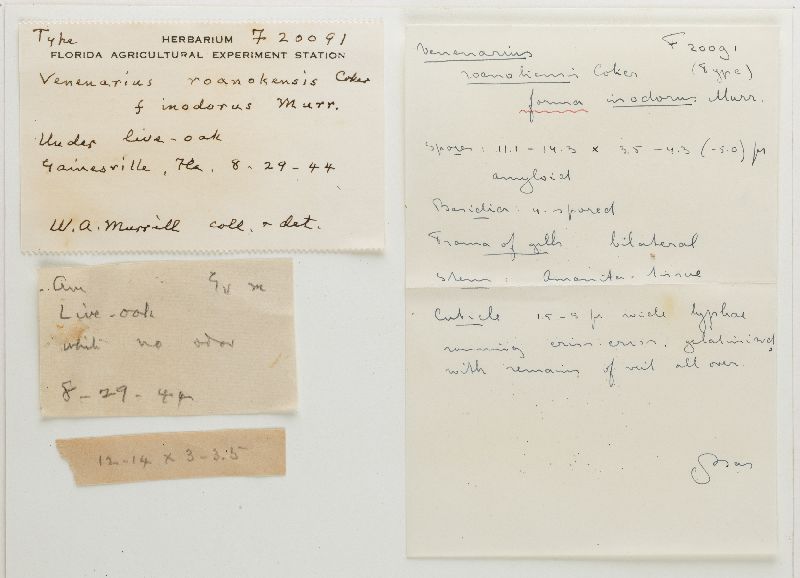 Type HERBARIUM F 20091
FLORIDA AGRICULTURAL EXPERIMENT STATION
Venenarius roanokensis Coker
f inodorus Murr.
Under live-oak
Gainesville, Fla, 8-29-44
W.A. Murrill coll. & det.
Am Gv m
Live-oak
white no odor
8-29-44
12-14 x 3-3.5
Venenarius F 20091
roanokensis Coker (Type)
forma inodorus Murr.
Spores: 11.1-14.3 x 3.5-4.3 (-5.0) µ
amyloid
Basidia: 4-spored
Trama of gills bilateral
Stem: Amanita-tissue
Cuticle µ wide hyphae
running criss-cross, gelatinized,
with remains of veil all over.
Bas